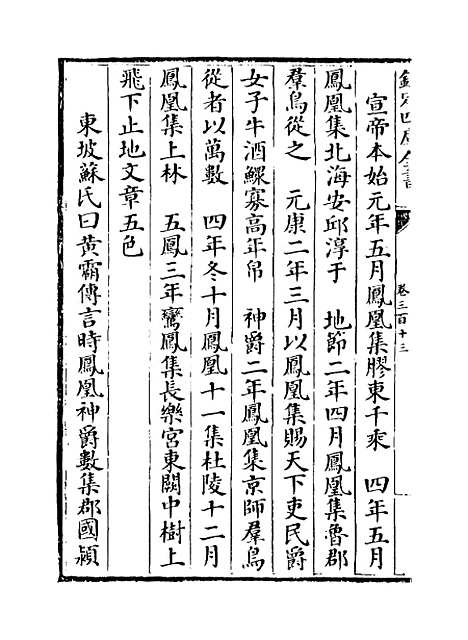 欽定四庫全書
卷三百十三
宣帝本始元年五月鳳凰集膠東千乘 四年五月
鳳凰集北海安邱淳于 地節二年四月鳳凰集魯郡
羣鳥從之 元康二年三月以鳳凰集賜天下吏民爵
女子牛酒鰥寡高年帛 神爵二年鳳凰集京師羣鳥
從者以萬數 四年冬十月鳳凰十一集杜陵十二月
鳳凰集上林 五鳳三年鸞鳳集長樂宮東闕中樹上
飛下止地文章五色
東坡蘇氏曰黄霸傳言時鳳凰神爵數集郡國潁